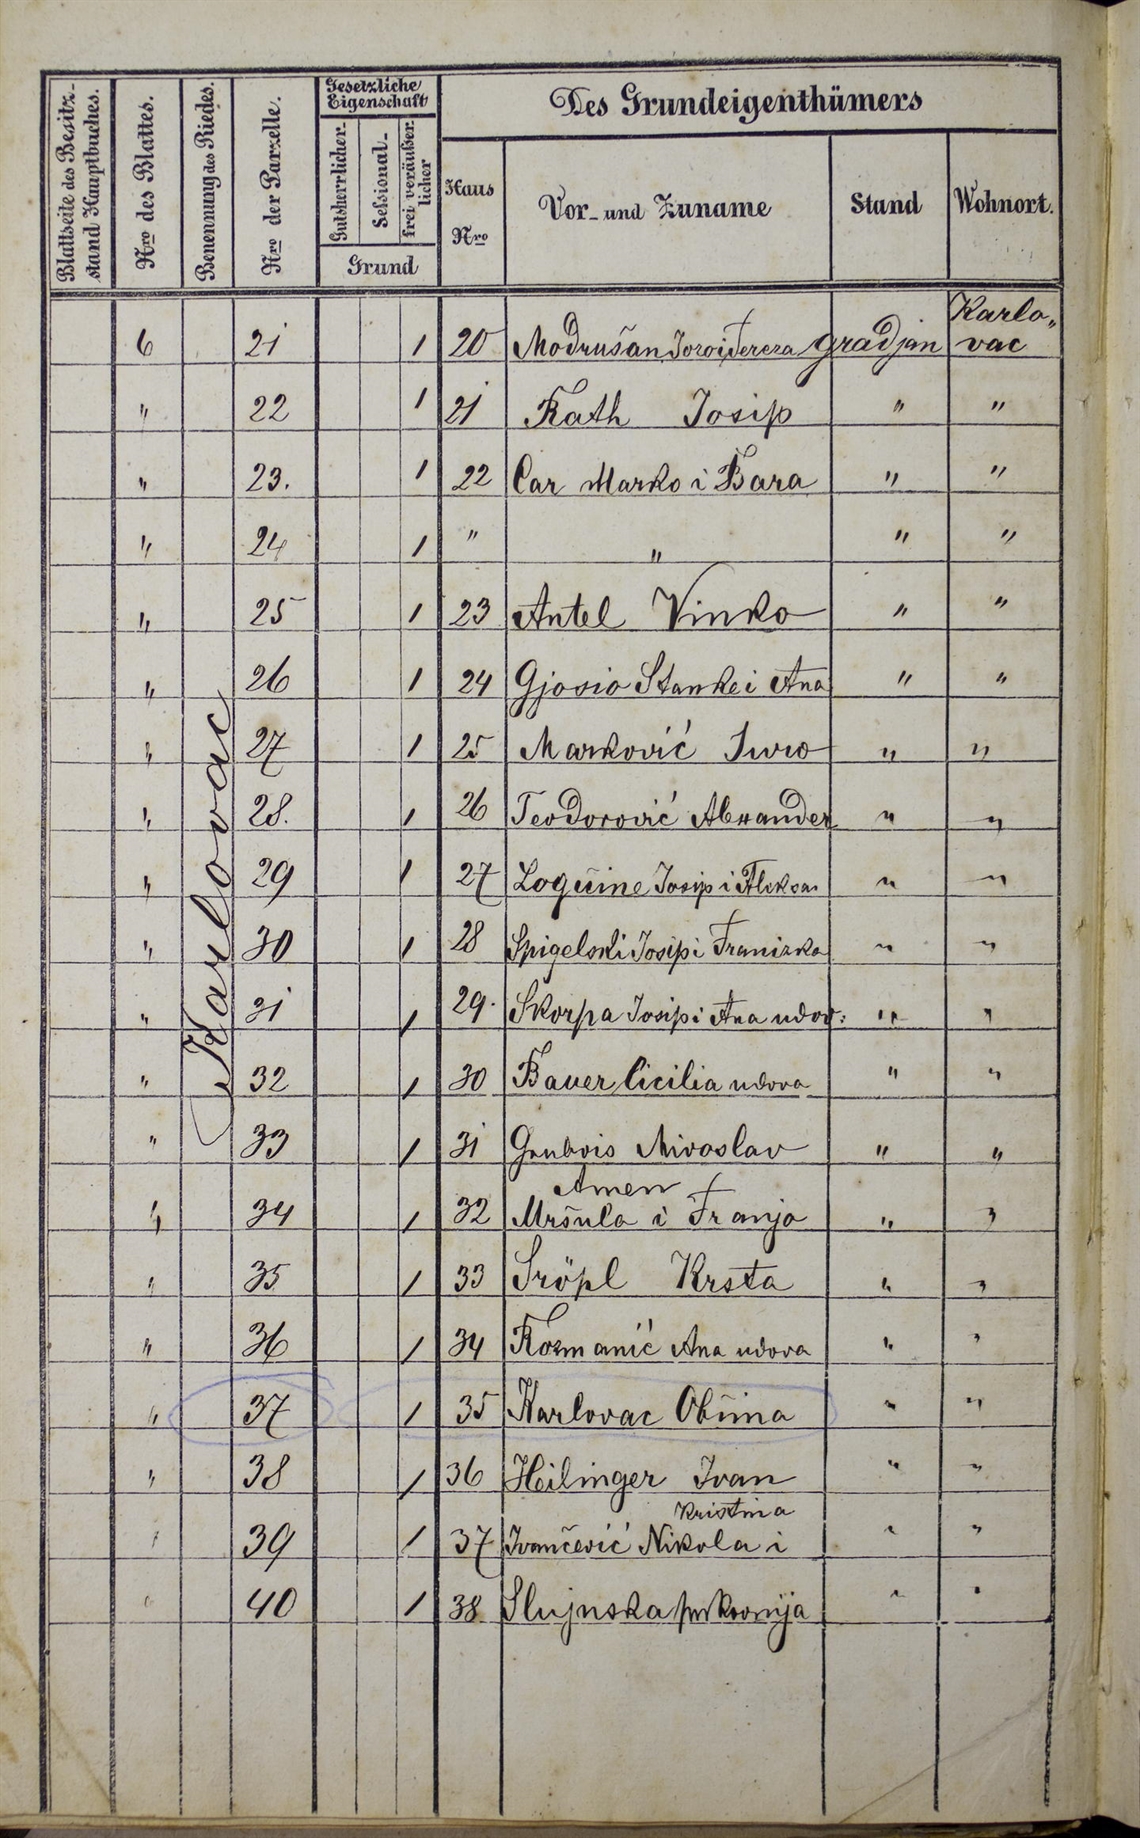 Blattseite des Besitz-
stand Hauptbuches.
Nro des Blattes.
Benennung des Riedes.
Nro der Parzelle.
Gesetzliche
Eigenschaft
Gutsherrlicher-
Sessional-
frei veräußer
licher
Grund
Des Grundeigenthümers
Haus
Nro
Vor- und Zuname
Stand
Wohnort.
Karlovac
6 21 1 20 Modrušan Joso i Tereza gradjan Karlo„
vac
" 22 1 21 Rath Josip " "
" 23. 1 22 Car Marko i Bara " "
" 24 1 " " " "
" 25 1 23 Antel Vinko " "
" 26 1 24 Gjosio Stanko i Ana " "
" 27 1 25 Marković Juro " "
" 28. 1 26 Teodorović Alexander " "
" 29 1 27 Josip i " "
" 30 1 28 Spigelski Josip i Franizka " "
" 31 1 29. Skorpa Josip i Ana udov: " "
" 32 1 30 Bauer Cicilia udova " "
" 33 1 31 Miroslav " "
Amen
" 34 1 32 Mršula i Franjo " "
" 35 1 33 Sröpl Krsta " "
" 36 1 34 Rozmanić Ana udova " "
" 37 1 35 Karlovac Obćina " "
" 38 1 36 Heilinger Ivan " "
Kristina
" 39 1 37 Ivančević Nikola i " "
" 40 1 38 Slujnska " "